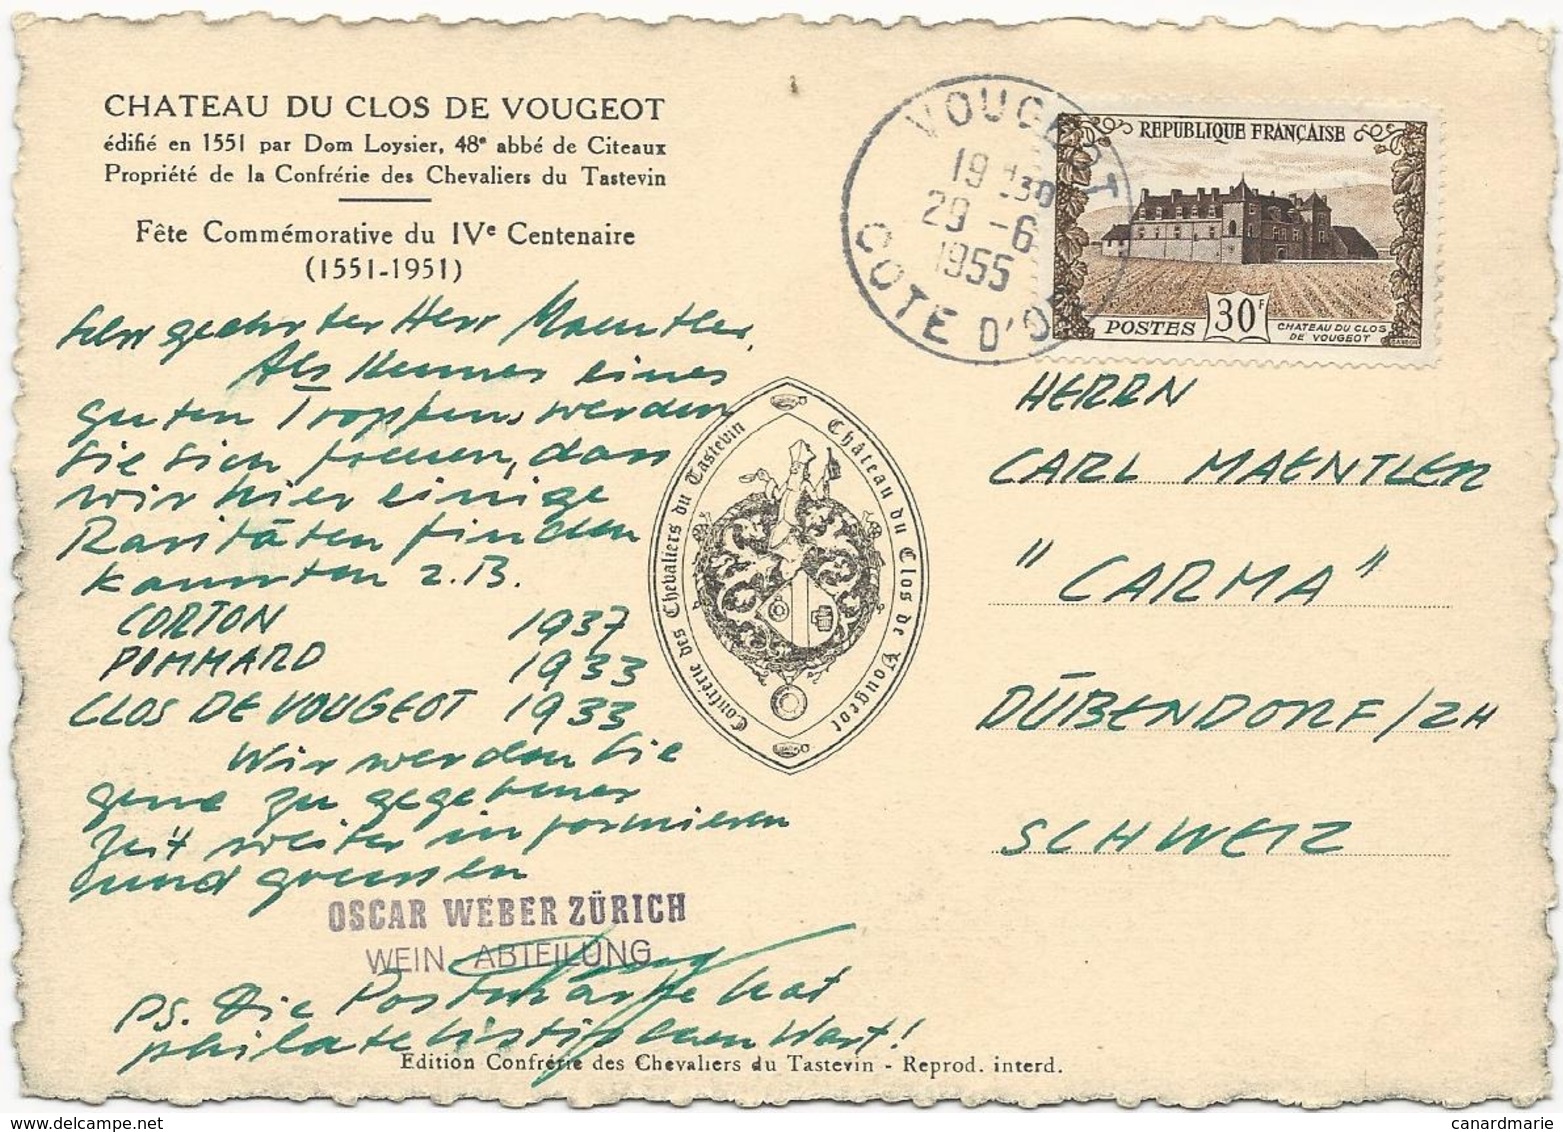 CHATEAU DU CLOS DE VOUGEOT
édifié en 1551 par Dom Loysier, 48e abbé de Citeaux
Propriété de la Confrérie des Chevaliers du Tastevin
Fête Commémorative du IVe Centenaire
(1551-1951)
Sehr geehrter Herr Maentler,
Als Kenner eines
guten Tropfens werden
Sie sich freuen, dass
wir hier einige
Raritäten finden
konnten z.B.
CORTON 1937
POMMARD 1933
CLOS DE VOUGEOT 1933
Wir werden Sie
gerne zu gegebener
Zeit weiter informieren
und grüssen
OSCAR WEBER ZÜRICH
WEIN ABTEILUNG
PS. Die Postkarte hat
philatelistischen Wert!
Edition Confrérie des Chevaliers du Tastevin - Reprod. interd.
Confrérie des Chevaliers du Tastevin
Château du Clos de Vougeot
VOUGEOT
19 H30
29 - 6
1955
COTE D'OR
REPUBLIQUE FRANÇAISE
POSTES 30F
CHATEAU DU CLOS
DE VOUGEOT
GANDON
HERRN
CARL MAENTLER
"CARMA"
DÜBENDORF/ZH
SCHWEIZ
canardmarie